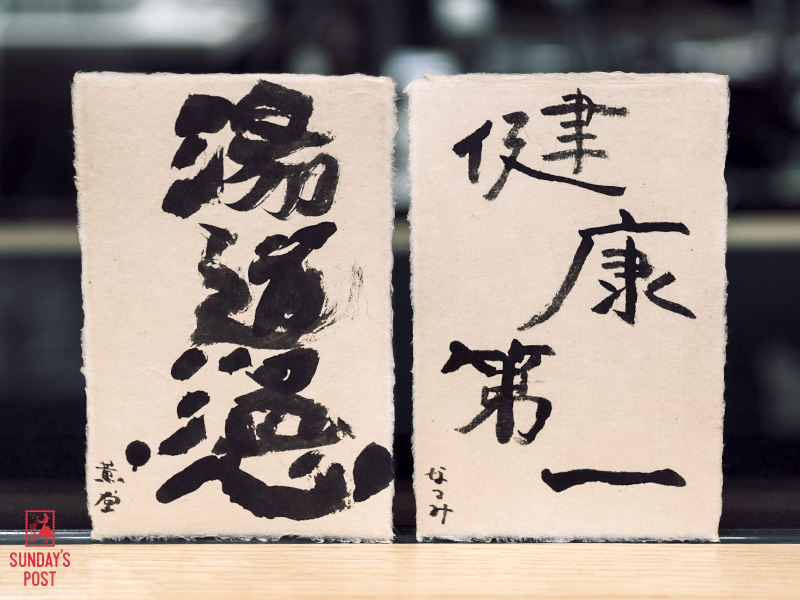 湯道温心
薫堂
健康第一
なつみ
SUNDAY'S
POST